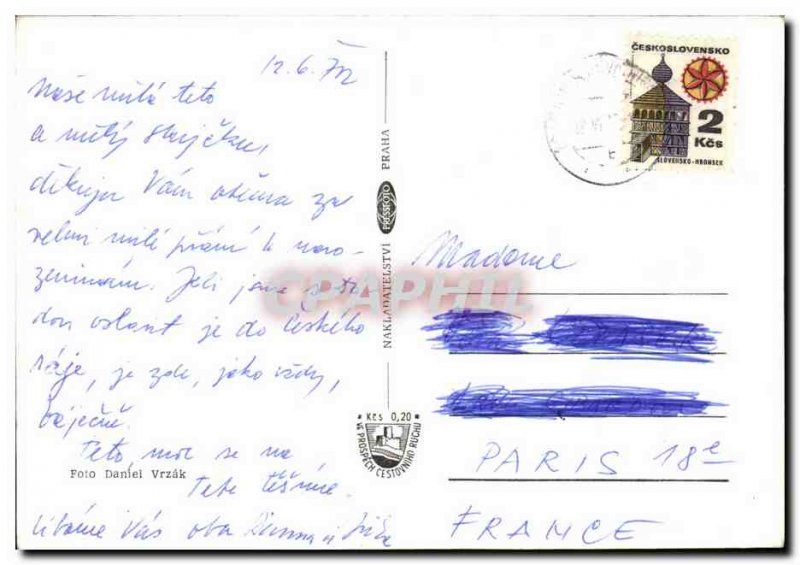 12.6.72
Naše milá teto
a milý strýčku,
děkuji Vám oběma za
velmi milé přání k naro-
zeninám. Jeli jsme s to
oslavit je do českého
ráje, je zde, jako vždy,
báječně.
Teto moc se na
Tebe těšíme.
Líbáme Vás oba
Foto Daniel Vrzák
NAKLADATELSTVÍ PRESSFOTO PRAHA
Kčs 0,20
VE PROSPĚCH CESTOVNÍHO RUCHU
ČESKOSLOVENSKO
2
Kčs
SLOVENSKO-HRONSEK
Madame
PARIS 18e
FRANCE
CPAPHIL